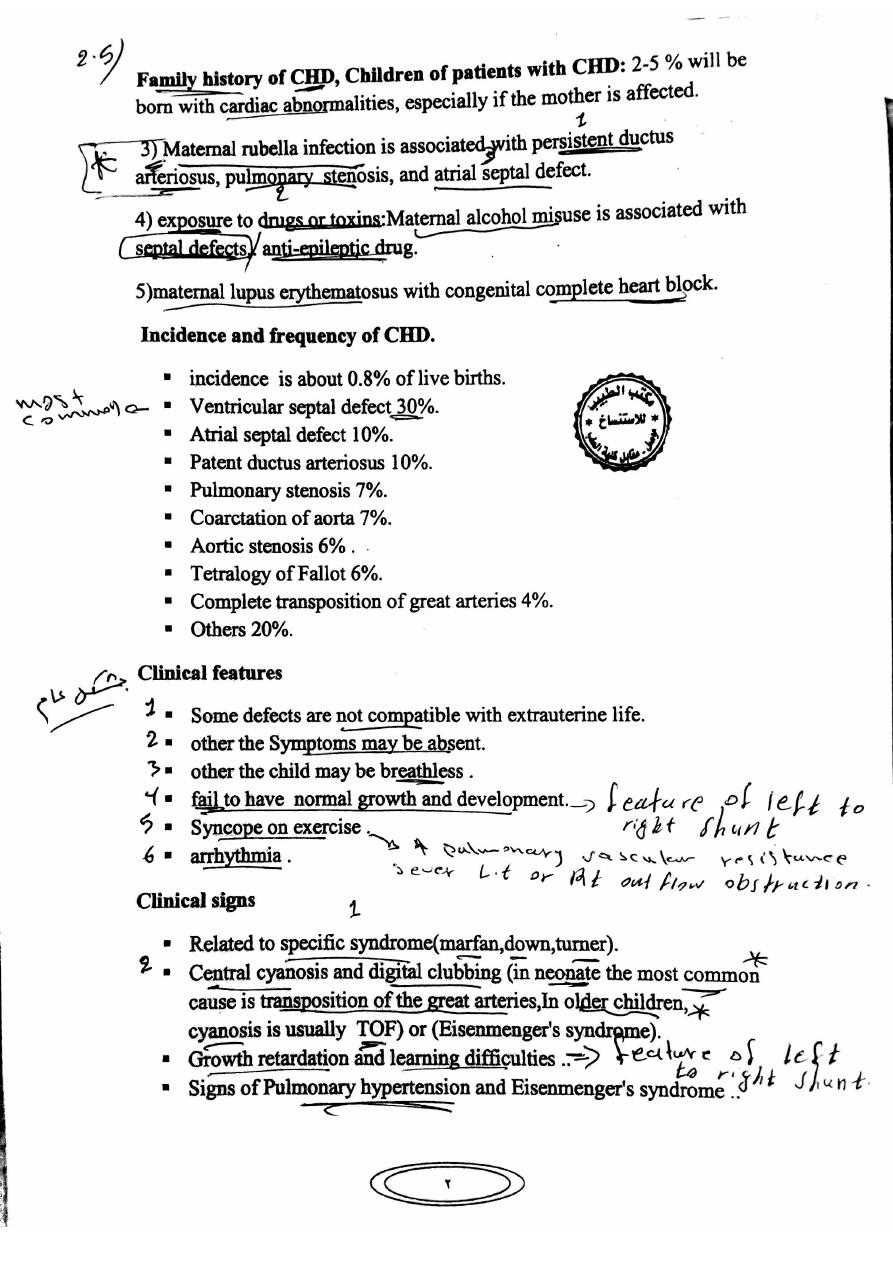 2.5)
Family history of CHD, Children of patients with CHD: 2-5 % will be
born with cardiac abnormalities, especially if the mother is affected.
1
3) Maternal rubella infection is associated with persistent ductus
3
arteriosus, pulmonary stenosis, and atrial septal defect.
2
4) exposure to drugs or toxins:Maternal alcohol misuse is associated with
septal defects, anti-epileptic drug.
5)maternal lupus erythematosus with congenital complete heart block.
Incidence and frequency of CHD.
▪ incidence is about 0.8% of live births.
most
common
▪ Ventricular septal defect 30%.
▪ Atrial septal defect 10%.
▪ Patent ductus arteriosus 10%.
▪ Pulmonary stenosis 7%.
▪ Coarctation of aorta 7%.
▪ Aortic stenosis 6% .
▪ Tetralogy of Fallot 6%.
▪ Complete transposition of great arteries 4%.
▪ Others 20%.
مكتب الطبيب
* للاستنساخ *
موصل - مقابل كلية الطب
Clinical features
1 ▪ Some defects are not compatible with extrauterine life.
2 ▪ other the Symptoms may be absent.
3 ▪ other the child may be breathless .
4 ▪ fail to have normal growth and development. → feature of left to
right shunt
5 ▪ Syncope on exercise .
pulmonary vascular resistance
6 ▪ arrhythmia .
sever Lt or Rt out flow obstruction.
Clinical signs
1
▪ Related to specific syndrome(marfan,down,turner).
2 ▪ Central cyanosis and digital clubbing (in neonate the most common
cause is transposition of the great arteries,In older children,
cyanosis is usually TOF) or (Eisenmenger's syndrome).
▪ Growth retardation and learning difficulties ..⇒ feature of left
to right shunt.
▪ Signs of Pulmonary hypertension and Eisenmenger's syndrome ..
٢